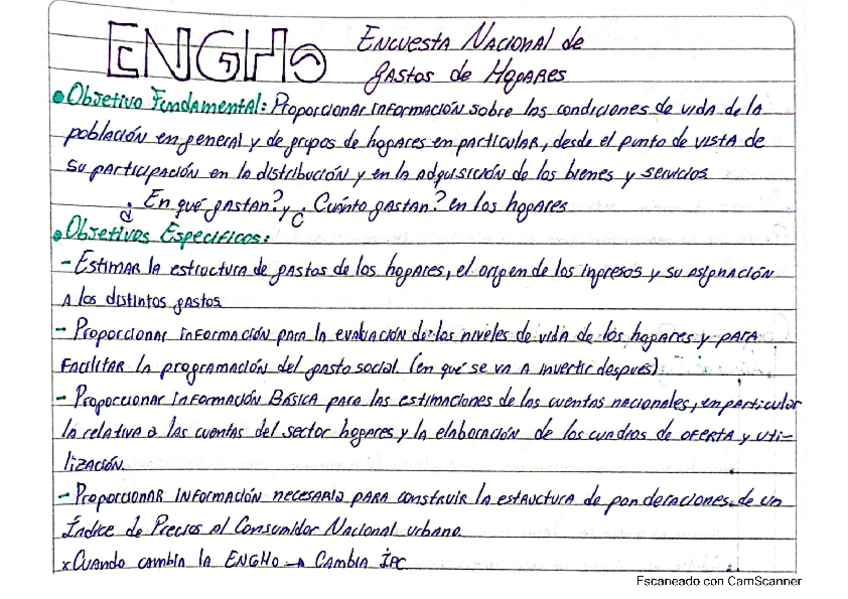 ENGHo Encuesta Nacional de
Gastos de Hogares
• Objetivo Fundamental: Proporcionar información sobre las condiciones de vida de la
población en general y de grupos de hogares en particular, desde el punto de vista de
su participación en la distribución y en la adquisición de los bienes y servicios.
¿En qué gastan? y ¿Cuánto gastan? en los hogares
• Objetivos Específicos:
- Estimar la estructura de gastos de los hogares, el origen de los ingresos y su asignación
a los distintos gastos.
- Proporcionar información para la evaluación de los niveles de vida de los hogares y para
facilitar la programación del gasto social. (en qué se va a invertir después)
- Proporcionar información básica para las estimaciones de las cuentas nacionales, en particular
la relativa a las cuentas del sector hogares y la elaboración de los cuadros de oferta y uti-
lización.
- Proporcionar información necesaria para construir la estructura de ponderaciones de un
Índice de Precios al Consumidor Nacional urbano.
x Cuando cambia la ENGHo → Cambia IPC
Escaneado con CamScanner